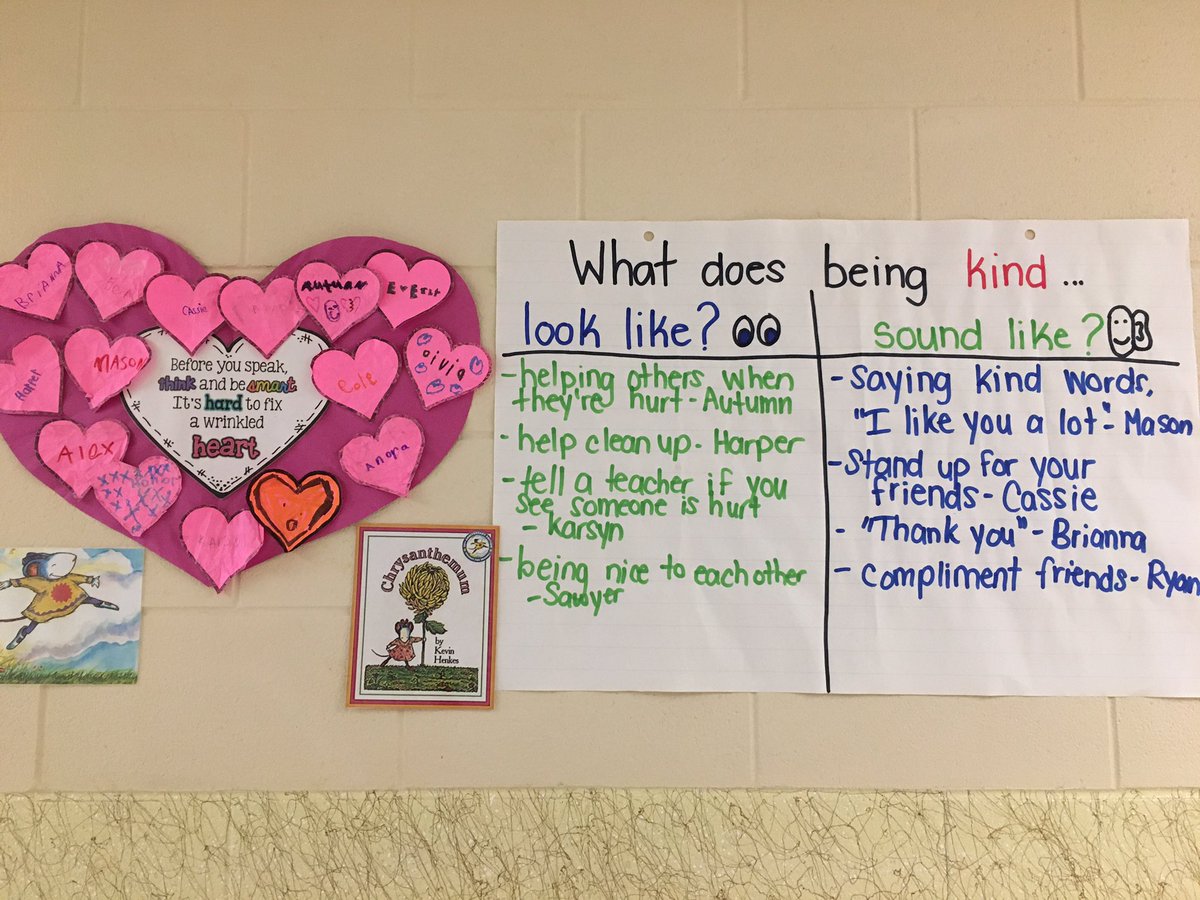 BriANNA
Cassie
AUTUMN
EvErEtt
Harper
MASON
Cole
olivia
Before you speak,
think and be smart
It's hard to fix
a wrinkled
heart
Alex
Chrysanthemum
by
Kevin
Henkes
What does being kind...
look like?
-helping others when
they're hurt-Autumn
- help clean up - Harper
- tell a teacher if you
see someone is hurt
- Karsyn
- being nice to each other
- Sawyer
sound like?
- Saying kind words,
"I like you a lot"- Mason
- Stand up for your
friends- Cassie
- "Thank you" - Brianna
- compliment friends- Ryan